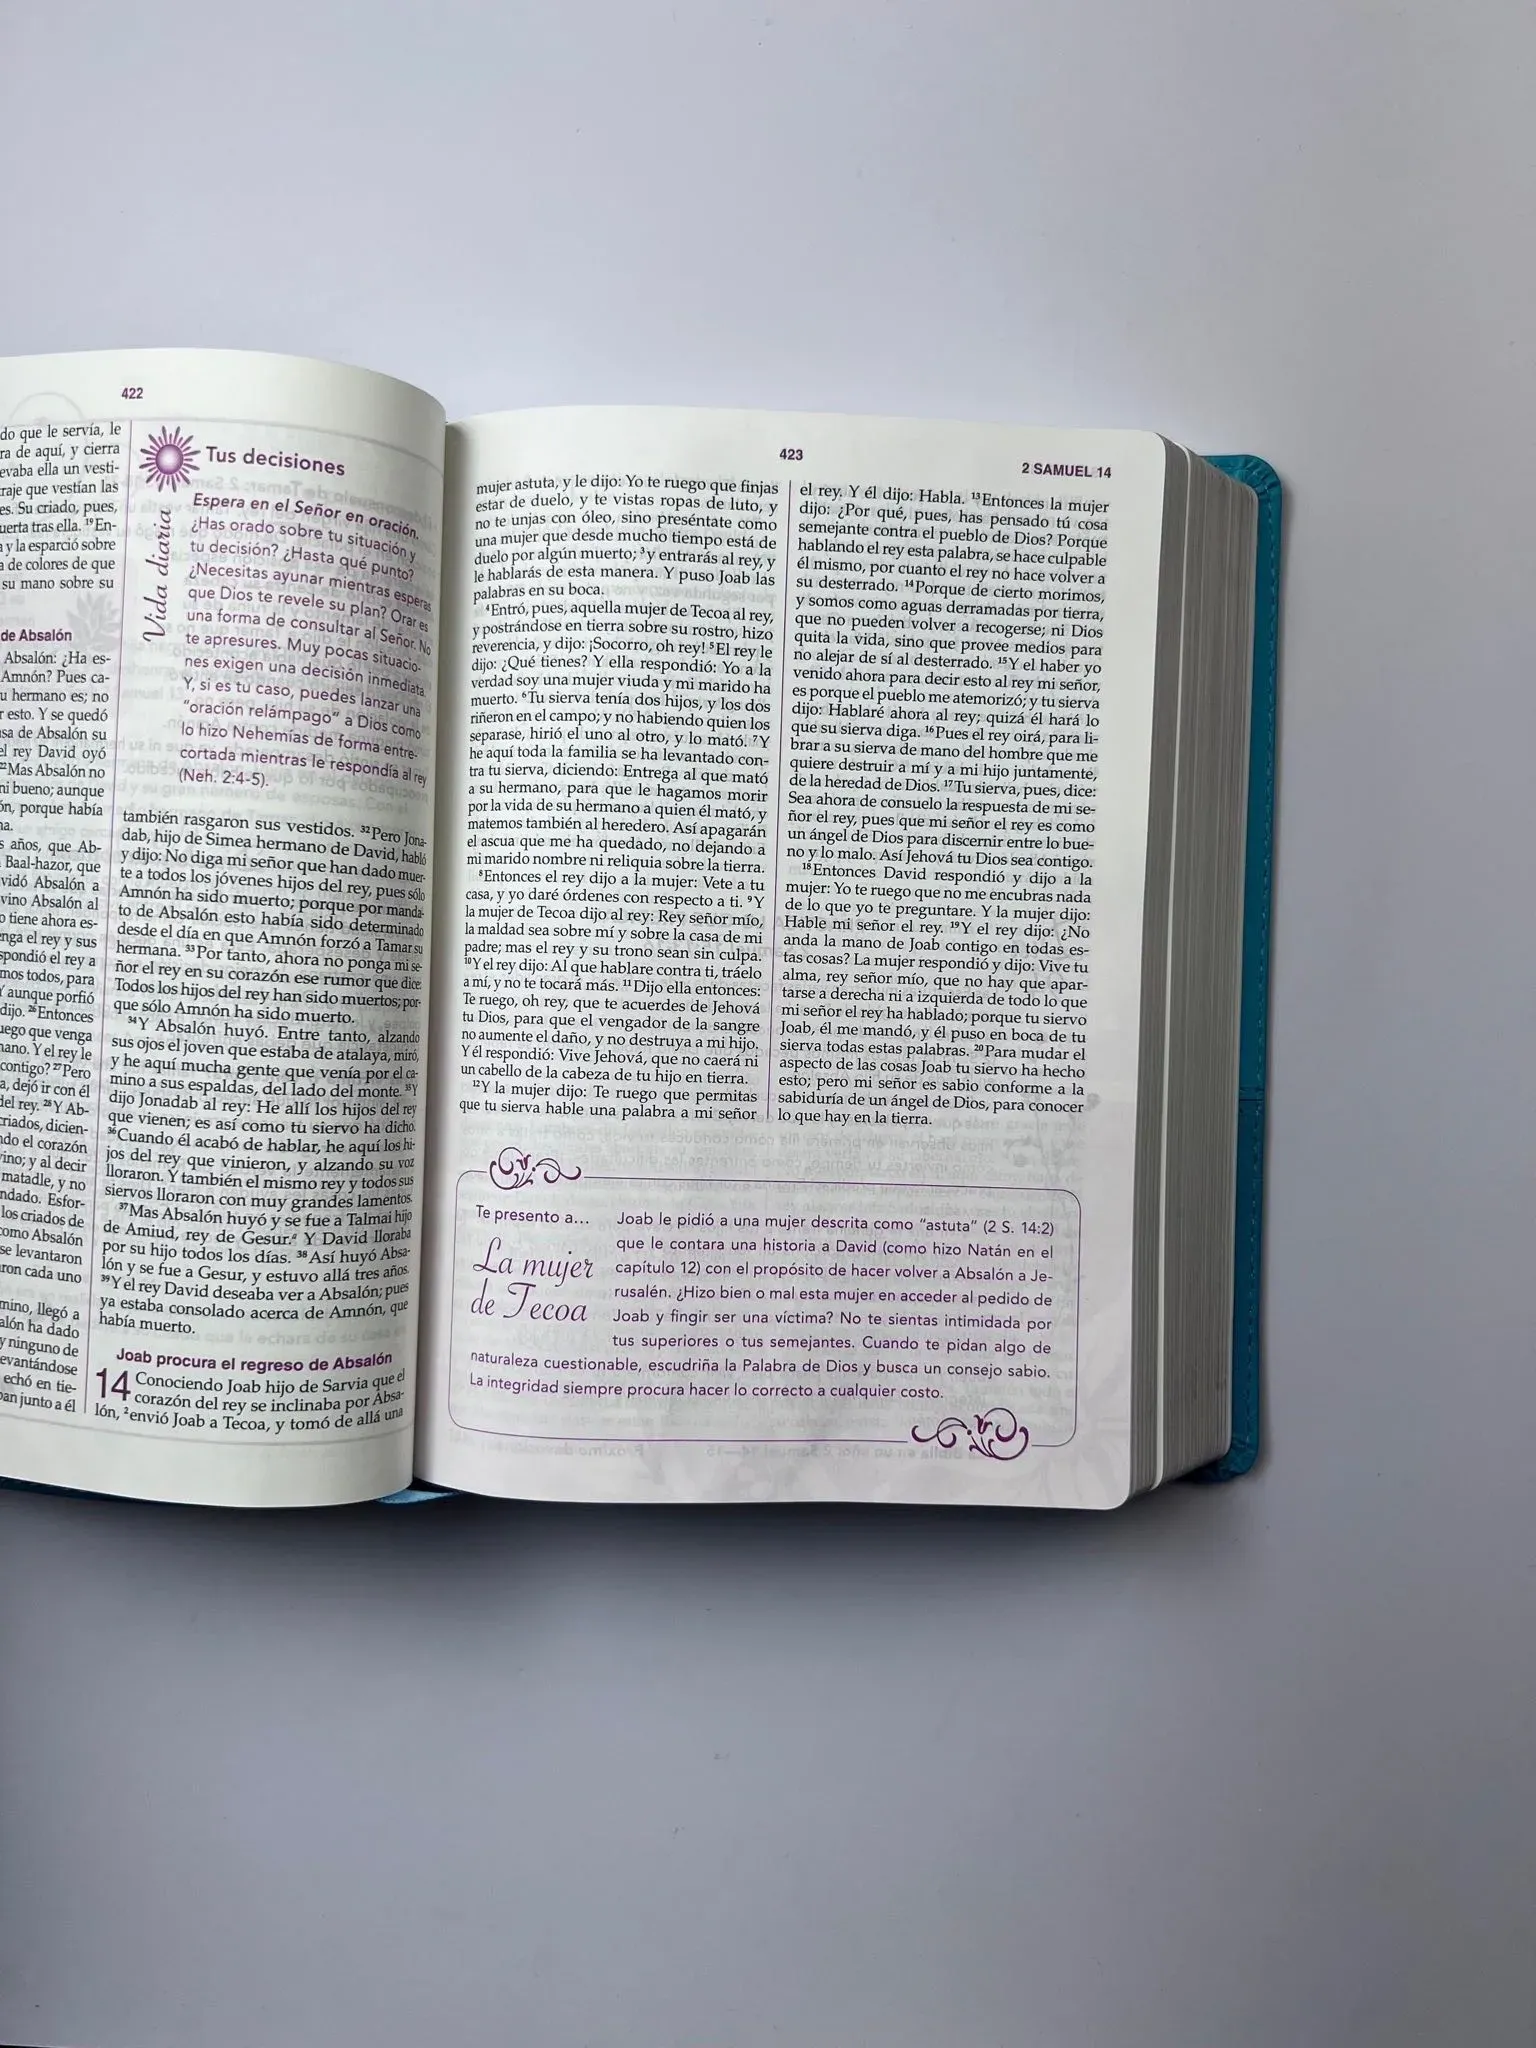 422
do que le servía, le
ra de aquí, y cierra
evaba ella un vesti-
traje que vestían las
es. Su criado, pues,
uerta tras ella. ¹⁹En-
a y la esparció sobre
a de colores de que
su mano sobre su
de Absalón
Absalón: ¿Ha es-
Amnón? Pues ca-
u hermano es; no
r esto. Y se quedó
sa de Absalón su
el rey David oyó
²²Mas Absalón no
ni bueno; aunque
ón, porque había
na.
s años, que Ab-
Baal-hazor, que
vidó Absalón a
vino Absalón al
o tiene ahora es-
enga el rey y sus
spondió el rey a
mos todos, para
Y aunque porfió
dijo. ²⁶Entonces
uego que venga
mano. Y el rey le
contigo? ²⁷Pero
a, dejó ir con él
del rey. ²⁸Y Ab-
criados, dicien-
ndo el corazón
vino; y al decir
matadle, y no
ndado. Esfor-
los criados de
como Absalón
se levantaron
ron cada uno
mino, llegó a
alón ha dado
y ninguno de
levantándose
echó en tie-
ban junto a él
Vida diaria
Tus decisiones
Espera en el Señor en oración.
¿Has orado sobre tu situación y
tu decisión? ¿Hasta qué punto?
¿Necesitas ayunar mientras esperas
que Dios te revele su plan? Orar es
una forma de consultar al Señor. No
te apresures. Muy pocas situacio-
nes exigen una decisión inmediata.
Y, si es tu caso, puedes lanzar una
"oración relámpago" a Dios como
lo hizo Nehemías de forma entre-
cortada mientras le respondía al rey
(Neh. 2:4-5).
también rasgaron sus vestidos. ³²Pero Jona-
dab, hijo de Simea hermano de David, habló
y dijo: No diga mi señor que han dado muer-
te a todos los jóvenes hijos del rey, pues sólo
Amnón ha sido muerto; porque por manda-
to de Absalón esto había sido determinado
desde el día en que Amnón forzó a Tamar su
hermana. ³³Por tanto, ahora no ponga mi se-
ñor el rey en su corazón ese rumor que dice:
Todos los hijos del rey han sido muertos; por-
que sólo Amnón ha sido muerto.
³⁴Y Absalón huyó. Entre tanto, alzando
sus ojos el joven que estaba de atalaya, miró,
y he aquí mucha gente que venía por el ca-
mino a sus espaldas, del lado del monte. ³⁵Y
dijo Jonadab al rey: He allí los hijos del rey
que vienen; es así como tu siervo ha dicho.
³⁶Cuando él acabó de hablar, he aquí los hi-
jos del rey que vinieron, y alzando su voz
lloraron. Y también el mismo rey y todos sus
siervos lloraron con muy grandes lamentos.
³⁷Mas Absalón huyó y se fue a Talmai hijo
de Amiud, rey de Gesur.ª Y David lloraba
por su hijo todos los días. ³⁸Así huyó Absa-
lón y se fue a Gesur, y estuvo allá tres años.
³⁹Y el rey David deseaba ver a Absalón; pues
ya estaba consolado acerca de Amnón, que
había muerto.
Joab procura el regreso de Absalón
14 Conociendo Joab hijo de Sarvia que el
corazón del rey se inclinaba por Absa-
lón, ²envió Joab a Tecoa, y tomó de allá una
423
2 SAMUEL 14
mujer astuta, y le dijo: Yo te ruego que finjas
estar de duelo, y te vistas ropas de luto, y
no te unjas con óleo, sino preséntate como
una mujer que desde mucho tiempo está de
duelo por algún muerto; ³y entrarás al rey, y
le hablarás de esta manera. Y puso Joab las
palabras en su boca.
⁴Entró, pues, aquella mujer de Tecoa al rey,
y postrándose en tierra sobre su rostro, hizo
reverencia, y dijo: ¡Socorro, oh rey! ⁵El rey le
dijo: ¿Qué tienes? Y ella respondió: Yo a la
verdad soy una mujer viuda y mi marido ha
muerto. ⁶Tu sierva tenía dos hijos, y los dos
riñeron en el campo; y no habiendo quien los
separase, hirió el uno al otro, y lo mató. ⁷Y
he aquí toda la familia se ha levantado con-
tra tu sierva, diciendo: Entrega al que mató
a su hermano, para que le hagamos morir
por la vida de su hermano a quien él mató, y
matemos también al heredero. Así apagarán
el ascua que me ha quedado, no dejando a
mi marido nombre ni reliquia sobre la tierra.
⁸Entonces el rey dijo a la mujer: Vete a tu
casa, y yo daré órdenes con respecto a ti. ⁹Y
la mujer de Tecoa dijo al rey: Rey señor mío,
la maldad sea sobre mí y sobre la casa de mi
padre; mas el rey y su trono sean sin culpa.
¹⁰Y el rey dijo: Al que hablare contra ti, tráelo
a mí, y no te tocará más. ¹¹Dijo ella entonces:
Te ruego, oh rey, que te acuerdes de Jehová
tu Dios, para que el vengador de la sangre
no aumente el daño, y no destruya a mi hijo.
Y él respondió: Vive Jehová, que no caerá ni
un cabello de la cabeza de tu hijo en tierra.
¹²Y la mujer dijo: Te ruego que permitas
que tu sierva hable una palabra a mi señor
el rey. Y él dijo: Habla. ¹³Entonces la mujer
dijo: ¿Por qué, pues, has pensado tú cosa
semejante contra el pueblo de Dios? Porque
hablando el rey esta palabra, se hace culpable
él mismo, por cuanto el rey no hace volver a
su desterrado. ¹⁴Porque de cierto morimos,
y somos como aguas derramadas por tierra,
que no pueden volver a recogerse; ni Dios
quita la vida, sino que provee medios para
no alejar de sí al desterrado. ¹⁵Y el haber yo
venido ahora para decir esto al rey mi señor,
es porque el pueblo me atemorizó; y tu sierva
dijo: Hablaré ahora al rey; quizá él hará lo
que su sierva diga. ¹⁶Pues el rey oirá, para li-
brar a su sierva de mano del hombre que me
quiere destruir a mí y a mi hijo juntamente,
de la heredad de Dios. ¹⁷Tu sierva, pues, dice:
Sea ahora de consuelo la respuesta de mi se-
ñor el rey, pues que mi señor el rey es como
un ángel de Dios para discernir entre lo bue-
no y lo malo. Así Jehová tu Dios sea contigo.
¹⁸Entonces David respondió y dijo a la
mujer: Yo te ruego que no me encubras nada
de lo que yo te preguntare. Y la mujer dijo:
Hable mi señor el rey. ¹⁹Y el rey dijo: ¿No
anda la mano de Joab contigo en todas es-
tas cosas? La mujer respondió y dijo: Vive tu
alma, rey señor mío, que no hay que apar-
tarse a derecha ni a izquierda de todo lo que
mi señor el rey ha hablado; porque tu siervo
Joab, él me mandó, y él puso en boca de tu
sierva todas estas palabras. ²⁰Para mudar el
aspecto de las cosas Joab tu siervo ha hecho
esto; pero mi señor es sabio conforme a la
sabiduría de un ángel de Dios, para conocer
lo que hay en la tierra.
Te presento a...
La mujer
de Tecoa
Joab le pidió a una mujer descrita como "astuta" (2 S. 14:2)
que le contara una historia a David (como hizo Natán en el
capítulo 12) con el propósito de hacer volver a Absalón a Je-
rusalén. ¿Hizo bien o mal esta mujer en acceder al pedido de
Joab y fingir ser una víctima? No te sientas intimidada por
tus superiores o tus semejantes. Cuando te pidan algo de
naturaleza cuestionable, escudriña la Palabra de Dios y busca un consejo sabio.
La integridad siempre procura hacer lo correcto a cualquier costo.